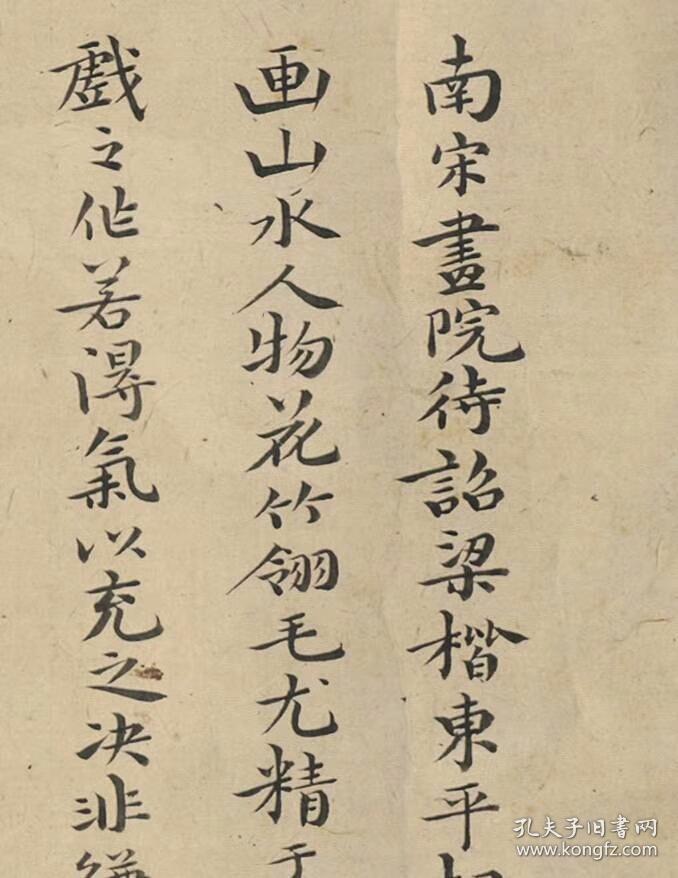 南宋畫院待詔梁楷東平相
画山水人物花竹翎毛尤精于
戲之作若得氣以充之决非
孔夫子旧书网
www.kongfz.com